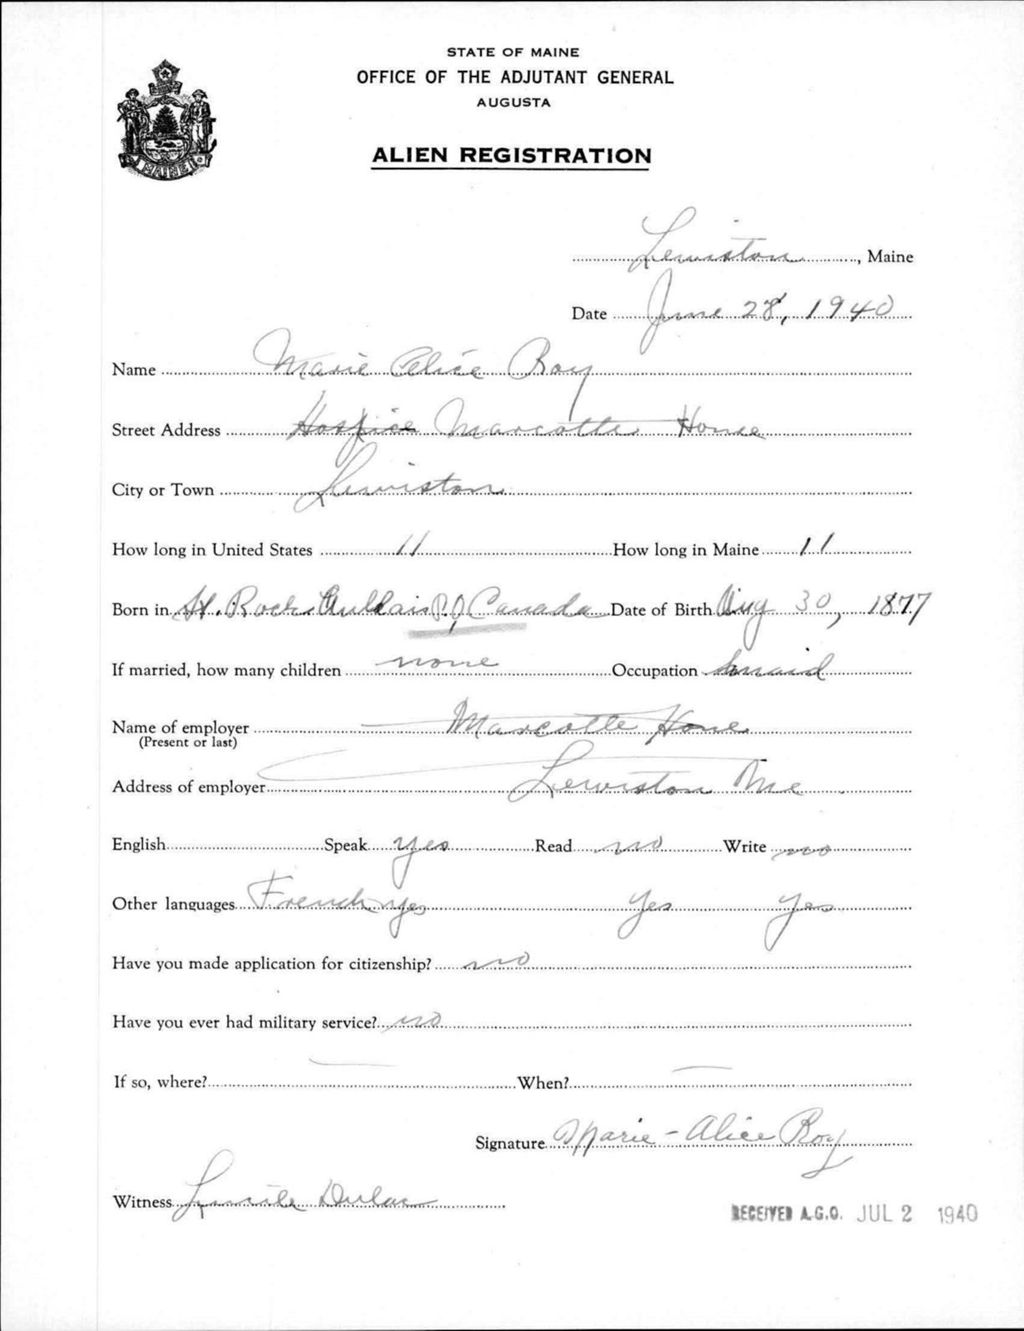 STATE OF MAINE
OFFICE OF THE ADJUTANT GENERAL
AUGUSTA
ALIEN REGISTRATION
MAINE
Lewiston, Maine
Date June 28, 1940
Name Marie Alice Roy
Street Address Hospice Marcotte Home
City or Town Lewiston
How long in United States 11 How long in Maine 11
Born in St. Rock P.Q Canada Date of Birth Aug 30, 1877
If married, how many children none Occupation maid
Name of employer Marcotte Home
(Present or last)
Address of employer Lewiston Me
English Speak yes Read no Write no
Other languages French yes yes yes
Have you made application for citizenship? no
Have you ever had military service? no
If so, where? — When? —
Signature Marie-Alice Roy
Witness Lucile Dulac
RECEIVED A.G.O. JUL 2 1940